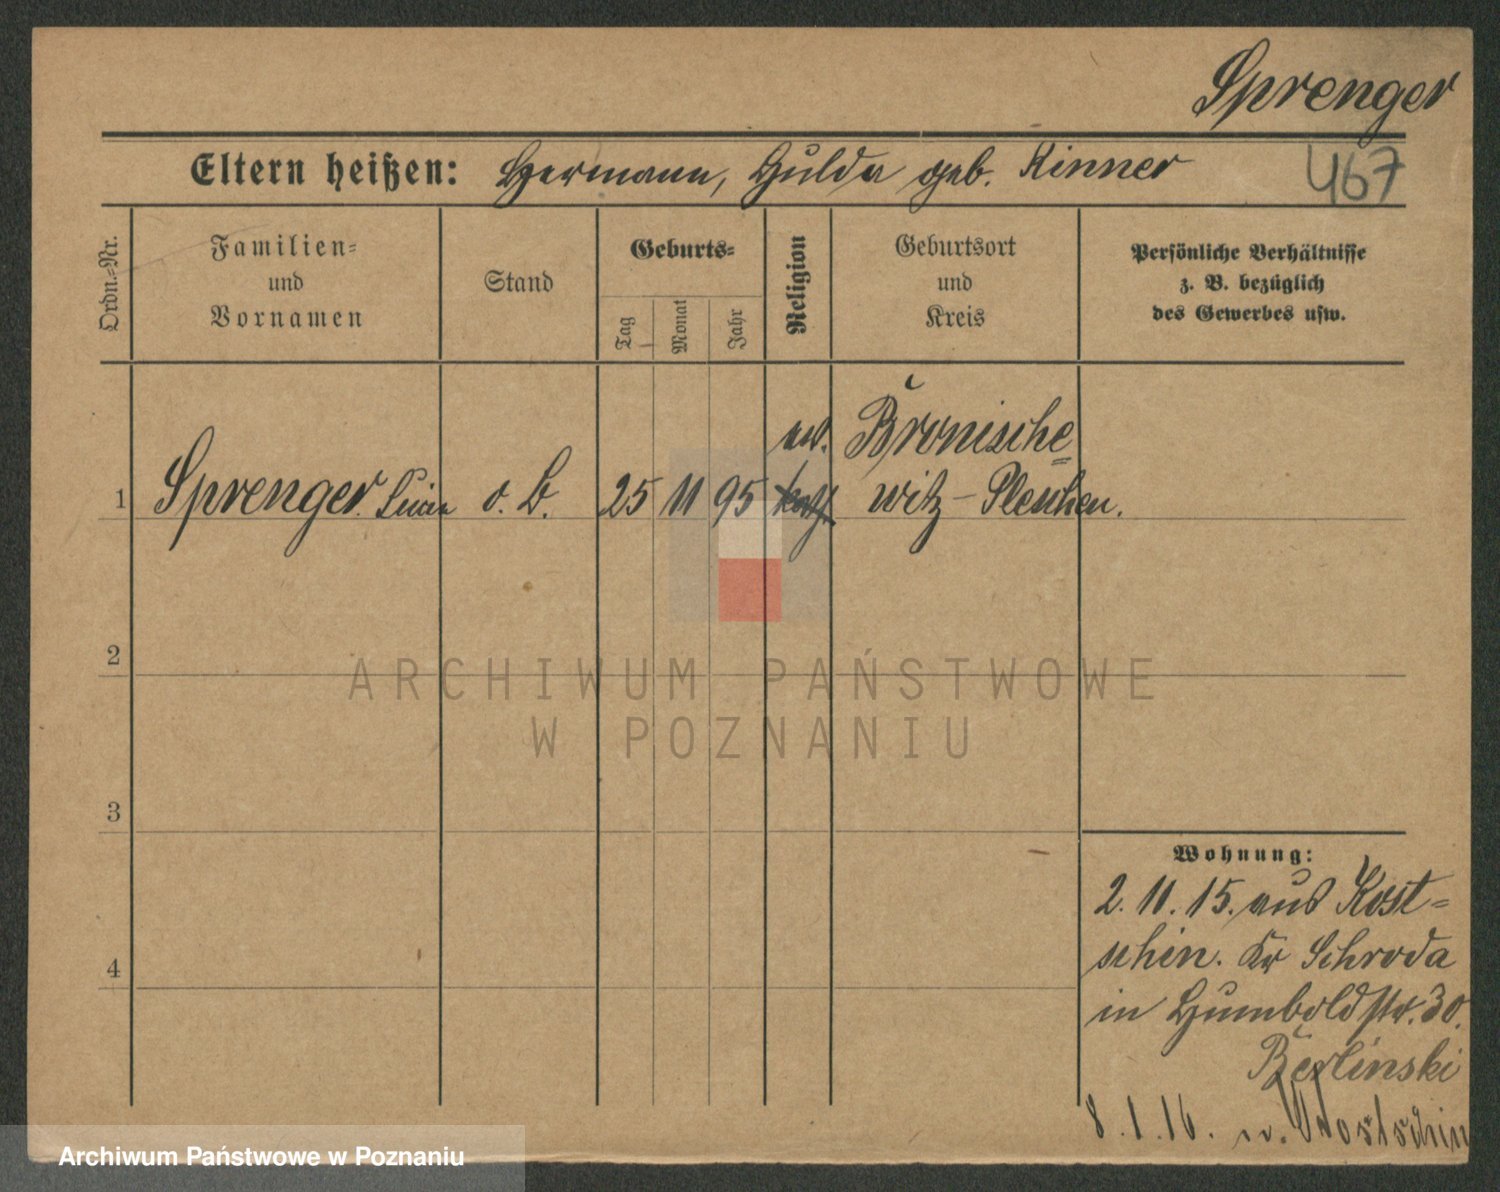 Sprenger
Eltern heißen: Hermann, Hulda geb. Kinner
467
Ordn.=Nr.
Familien=
und
Vornamen
Stand
Geburts=
Tag
Monat
Jahr
Religion
Geburtsort
und
Kreis
Persönliche Verhältnisse
z. B. bezüglich
des Gewerbes usw.
ev. Bronische=
1 Sprenger o. B. 25 11 95 kath. witz - Pleschen.
2
3
4
Wohnung:
2. 11. 15. aus Kost=
schin. Kr Schroda
in Humboldstr. 30.
Berlinski
8. 1. 16. n. Kostschin
ARCHIWUM PAŃSTWOWE
W POZNANIU
Archiwum Państwowe w Poznaniu